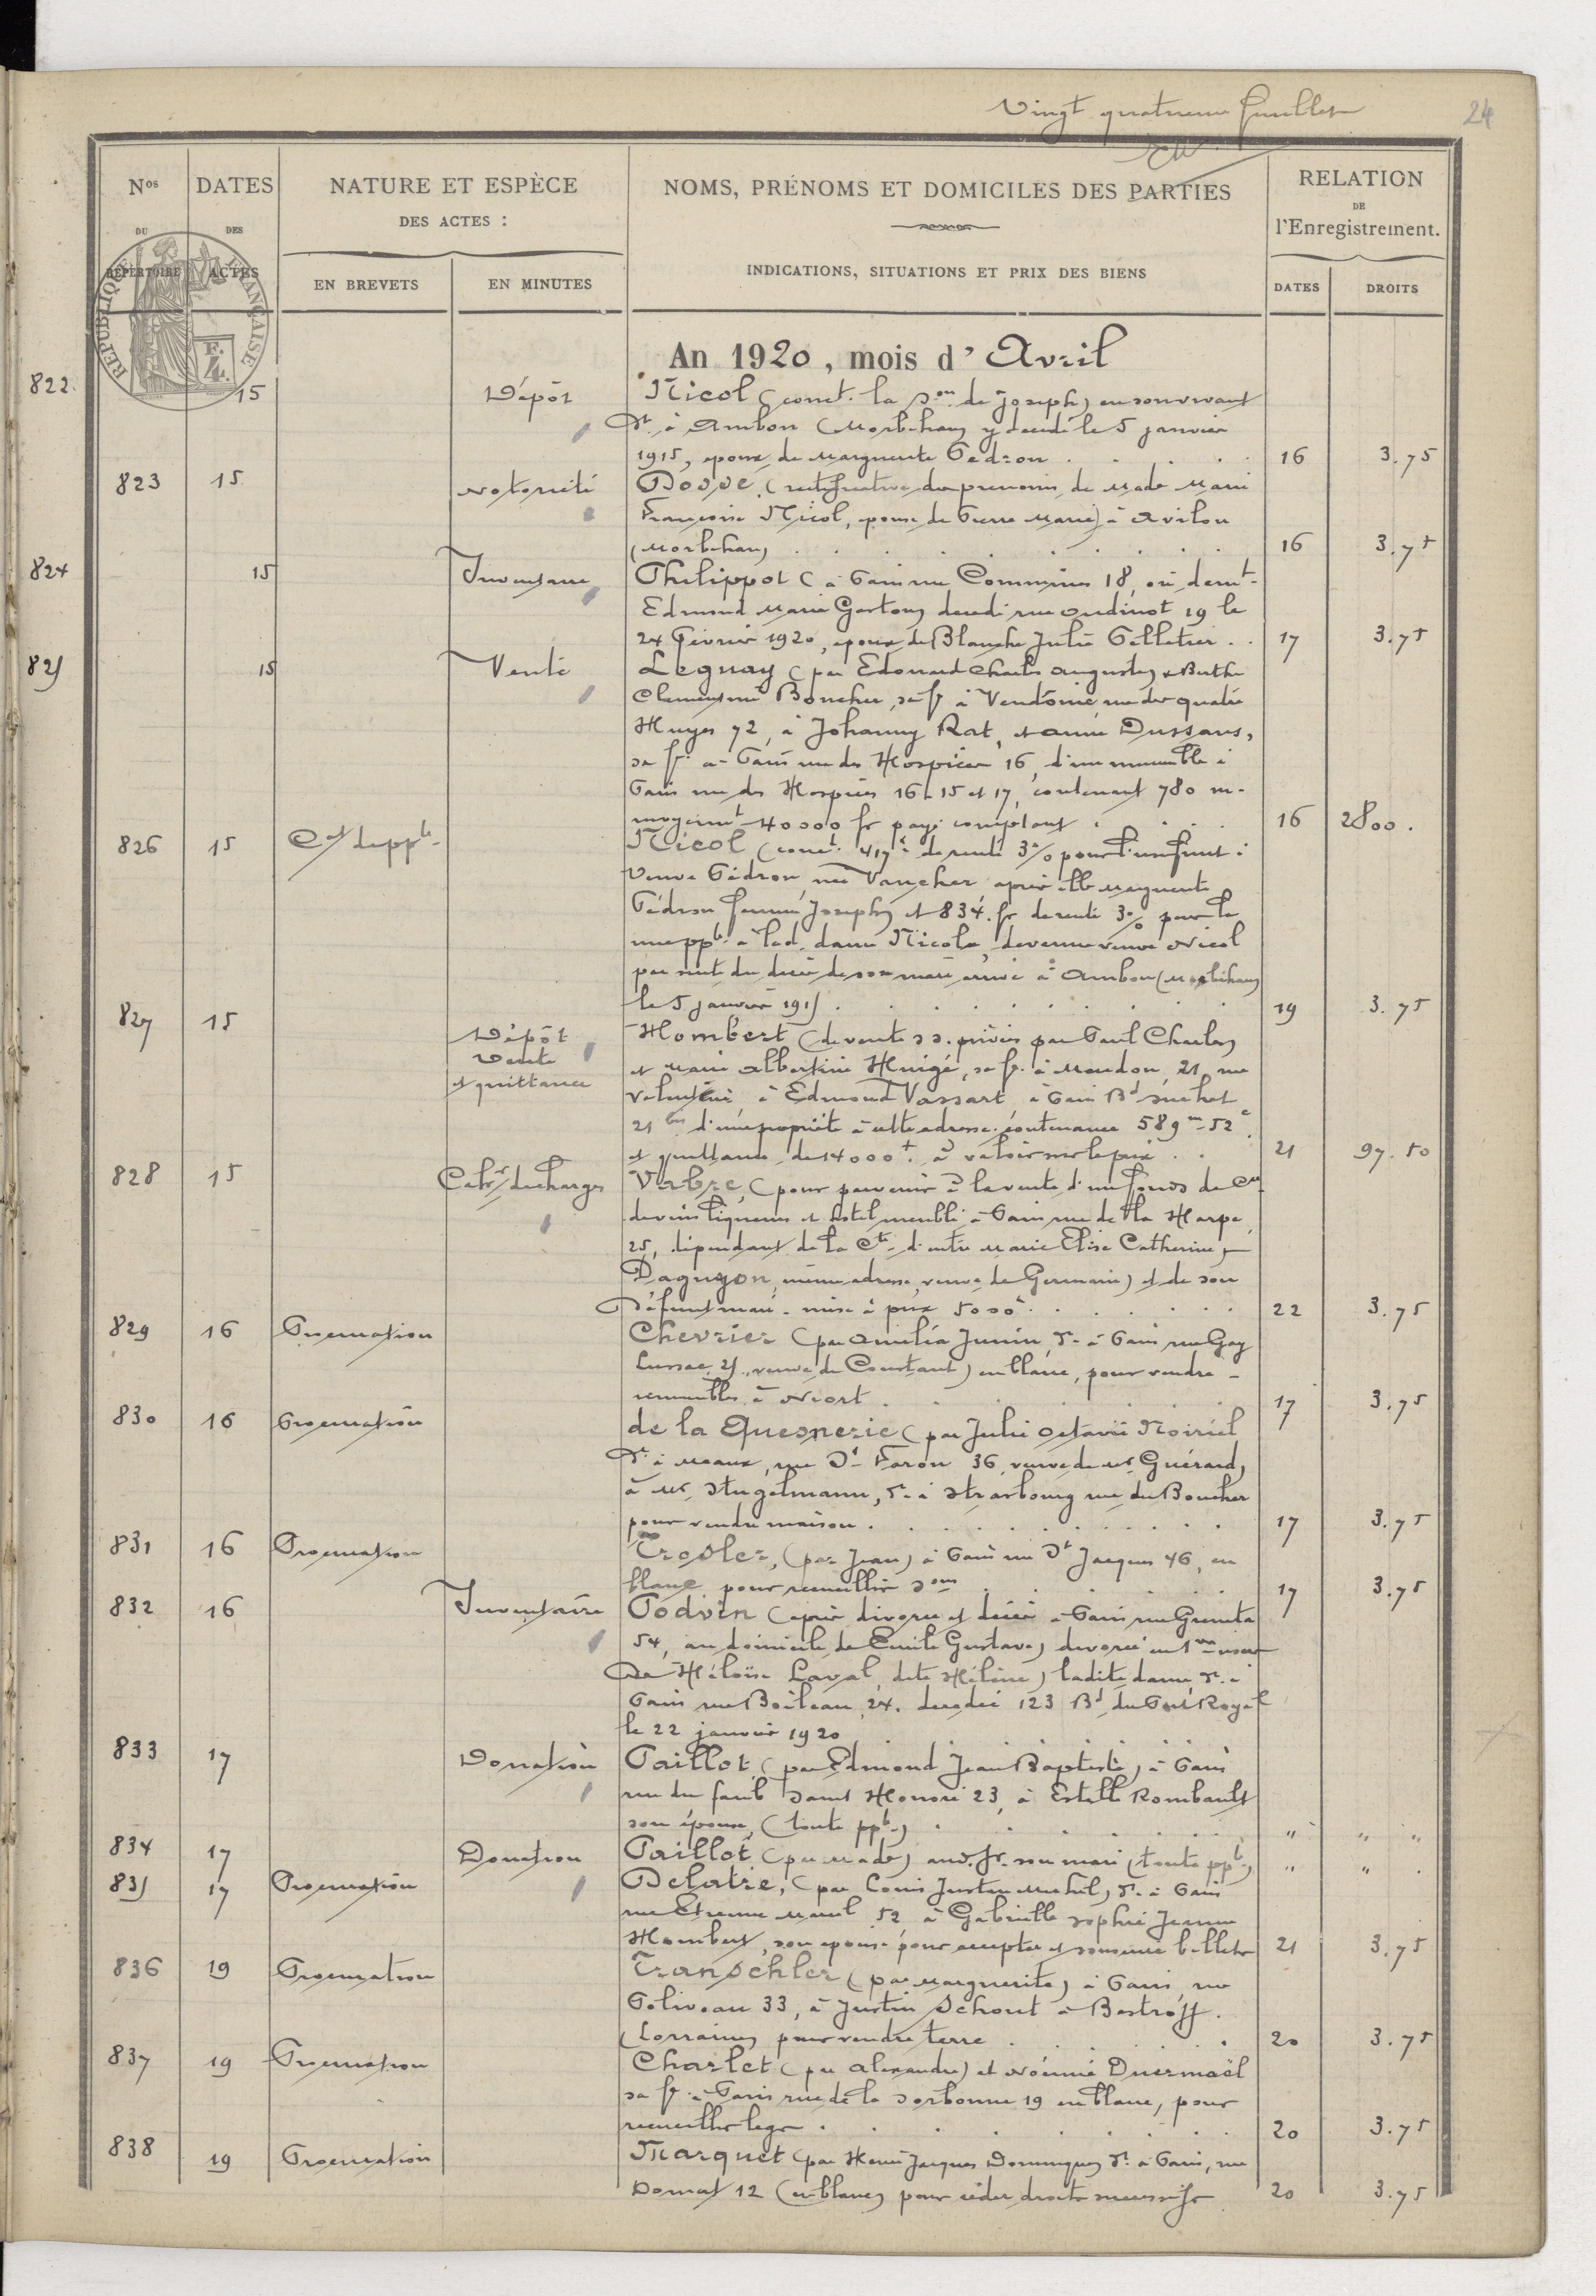 Vingt quatrieme feuillet
24
Nos DATES NATURE ET ESPÈCE NOMS, PRÉNOMS ET DOMICILES DES PARTIES RELATION
DU DES DES ACTES : DE
RÉPERTOIRE ACTES l'Enregistrement.
EN BREVETS EN MINUTES INDICATIONS, SITUATIONS ET PRIX DES BIENS DATES DROITS
RÉPUBLIQUE FRANÇAISE
An 1920, mois d'Avril
822 15 Dépôt Nicol (conct. la son de Joseph) en son vivant
dt à Ambon (Morbihan) y décédé le 5 janvier
1915, époux de Marguerite Pedron 16 3.75
823 15 Notoriété Dosse (rectificative des prenoms de Made Marie
Françoise Nicol, epouse de Pierre Marie) à
(Morbihan) 16 3.75
824 15 Inventaire Philippot (à Paris rue Commines 18, où demt
Edmond Marie Gaston) decedé rue Oudinot 19 le
24 Février 1920, epoux de Blanche Julie Pelletier 17 3.75
825 15 Vente Leguay (par Edouard Charles Auguste) & Berthe
Clementine Boucher, sa fe à Vendôme, rue des quatre
Huyes 72, à Johanny Rat, et Dussaus,
sa fe à Paris rue des Hospices 16, d'un immeuble à
Paris rue des Hospices 16-15 et 17, contenant 780 m.
moyennt 40000 fr payé comptant 16 2800.
826 15 Cat de ppte Nicol (conct. 417 f de rente 3% pour l'usufruit à
Veuve Pédron, née Vaucher, après elle Marguerite
Pédron femme Joseph) et 834 fr de rente 3% pour la
nue ppté à lad. dame Nicole, devenue veuve Nicol
par suite du décès de son mari arrivé à Ambon (Morbihan)
le 5 janvier 1915 19 3.75
827 15 Dépôt Hombert (de vente ss. privés par Paul Charles)
Vente et Marie Albertine Hénigé, sa fe. à Meudon, 21, rue
et quittance à Edmond Vassart, à Paris Bd Suchet
21 bis d'une propriété à cette adresse contenance 589m-52c
et quittance de 14000f. à valoir sur le prix 21 97.50
828 15 Cahr de charges Vabre, (pour parvenir à la vente d'un fonds de Cce
de vins liqueurs et hôtel meublé à Paris rue de la Harpe
25, dépendant de la Cté d'entre Marie Elise Catherine
Daguzon, même adresse, veuve de Germain) et de son
défunt mari - mise à prix 5000f 22 3.75
829 16 Procuration Chevrier (par Amélia Junin, dt à Paris rue Gay
Lussac, 25, veuve de Constant) en blanc, pour vendre
immeubles à Niort 17 3.75
830 16 Procuration de la Quesnerie (par Julie Octavie Noiriel
dt à Meaux, rue St Faron 36, veuve de Mr Guérard)
à Mr Stugelmann, dt à Strasbourg rue du Boucher
pour vendre maison 17 3.75
831 16 Procuration Trosler, (par Jean) à Paris rue St Jacques 46, en
blanc, pour recueillir son 17 3.75
832 16 Inventaire Podvin (après divorce et décès à Paris rue Greneta
54, au domicile de Emile Gustave) divorcé en
de Héloïse Laval, dite Hélène) ladite dame, dt à
Paris rue Boileau, 24. decedée 123 Bd du Port Royal
le 22 janvier 1920
833 17 Donation Paillot (par Edmond Jean Baptiste) à Paris
rue du faub Saint Honoré 23, à Estelle Rombault
son épouse, (toute ppté) " " "
834 17 Donation Paillot (par Made) aud. Sr. son mari (toute ppté) " "
835 17 Procuration Delatre, (par Louis Justin Michel) dt à Paris
rue Etienne Marcel 52, à Gabrielle Sophie Jeanne
Hombert, son epouse pour accepter et souscrire billets 21 3.75
836 19 Procuration Transchler (par Marguerite) à Paris, rue
Poliveau 33, à Justin Schout à Bestroff.
(Lorraine) pour vendre terre 20 3.75
837 19 Procuration Charlet (par Alexandre) et Noémie Duermaël
sa fe. à Paris rue de la Sorbonne 19 en blanc, pour
recueillir legs 20 3.75
838 19 Procuration Marquet (par Henri Jacques Dominique) dt à Paris, rue
Domat 12 (en blanc) pour céder droits successifs 20 3.75